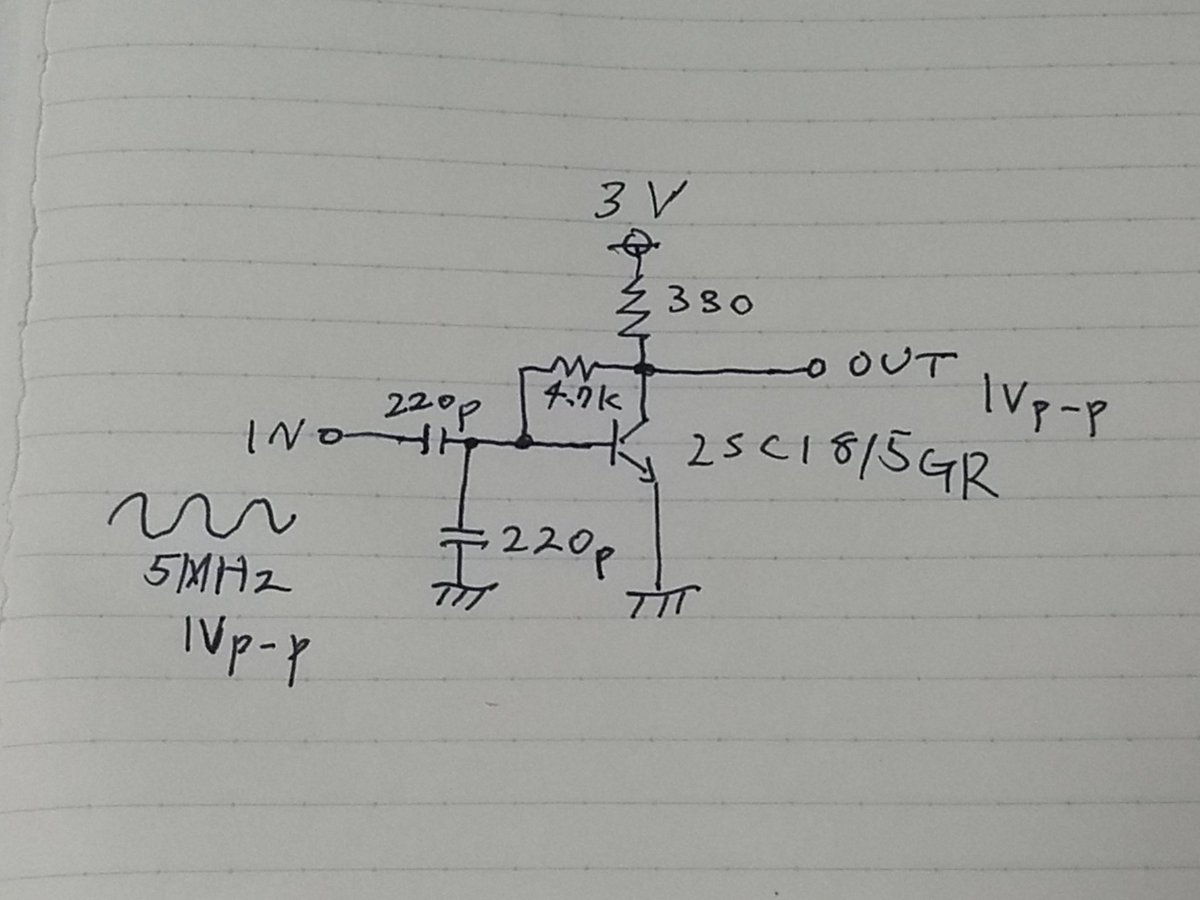 3V
330
OUT
4.7k
220p
1Vp-p
IN
2SC1815GR
220p
5MHz
1Vp-p